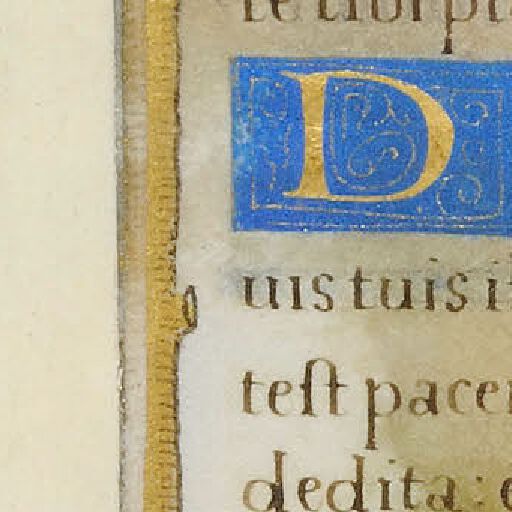 D
uis tuis i
test pace
dedita: